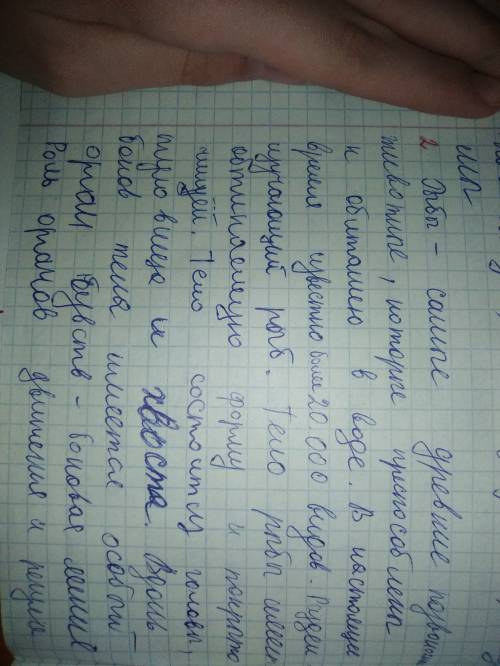 ша-
2 Рыбы - самые древние позвоноч
животные, которые приспособлены
к обитанию в воде. В настоящее
время известно более 20.000 видов. Раздел
изучающий рыб. Тело рыбы имеет
обтикаемую форму и покрыто
чешуёй. Тело состоит из головы,
туловища и хвоста. Вдоль
боков тела имеется особый -
орган чувств - боковая линия
Роль органов движения и